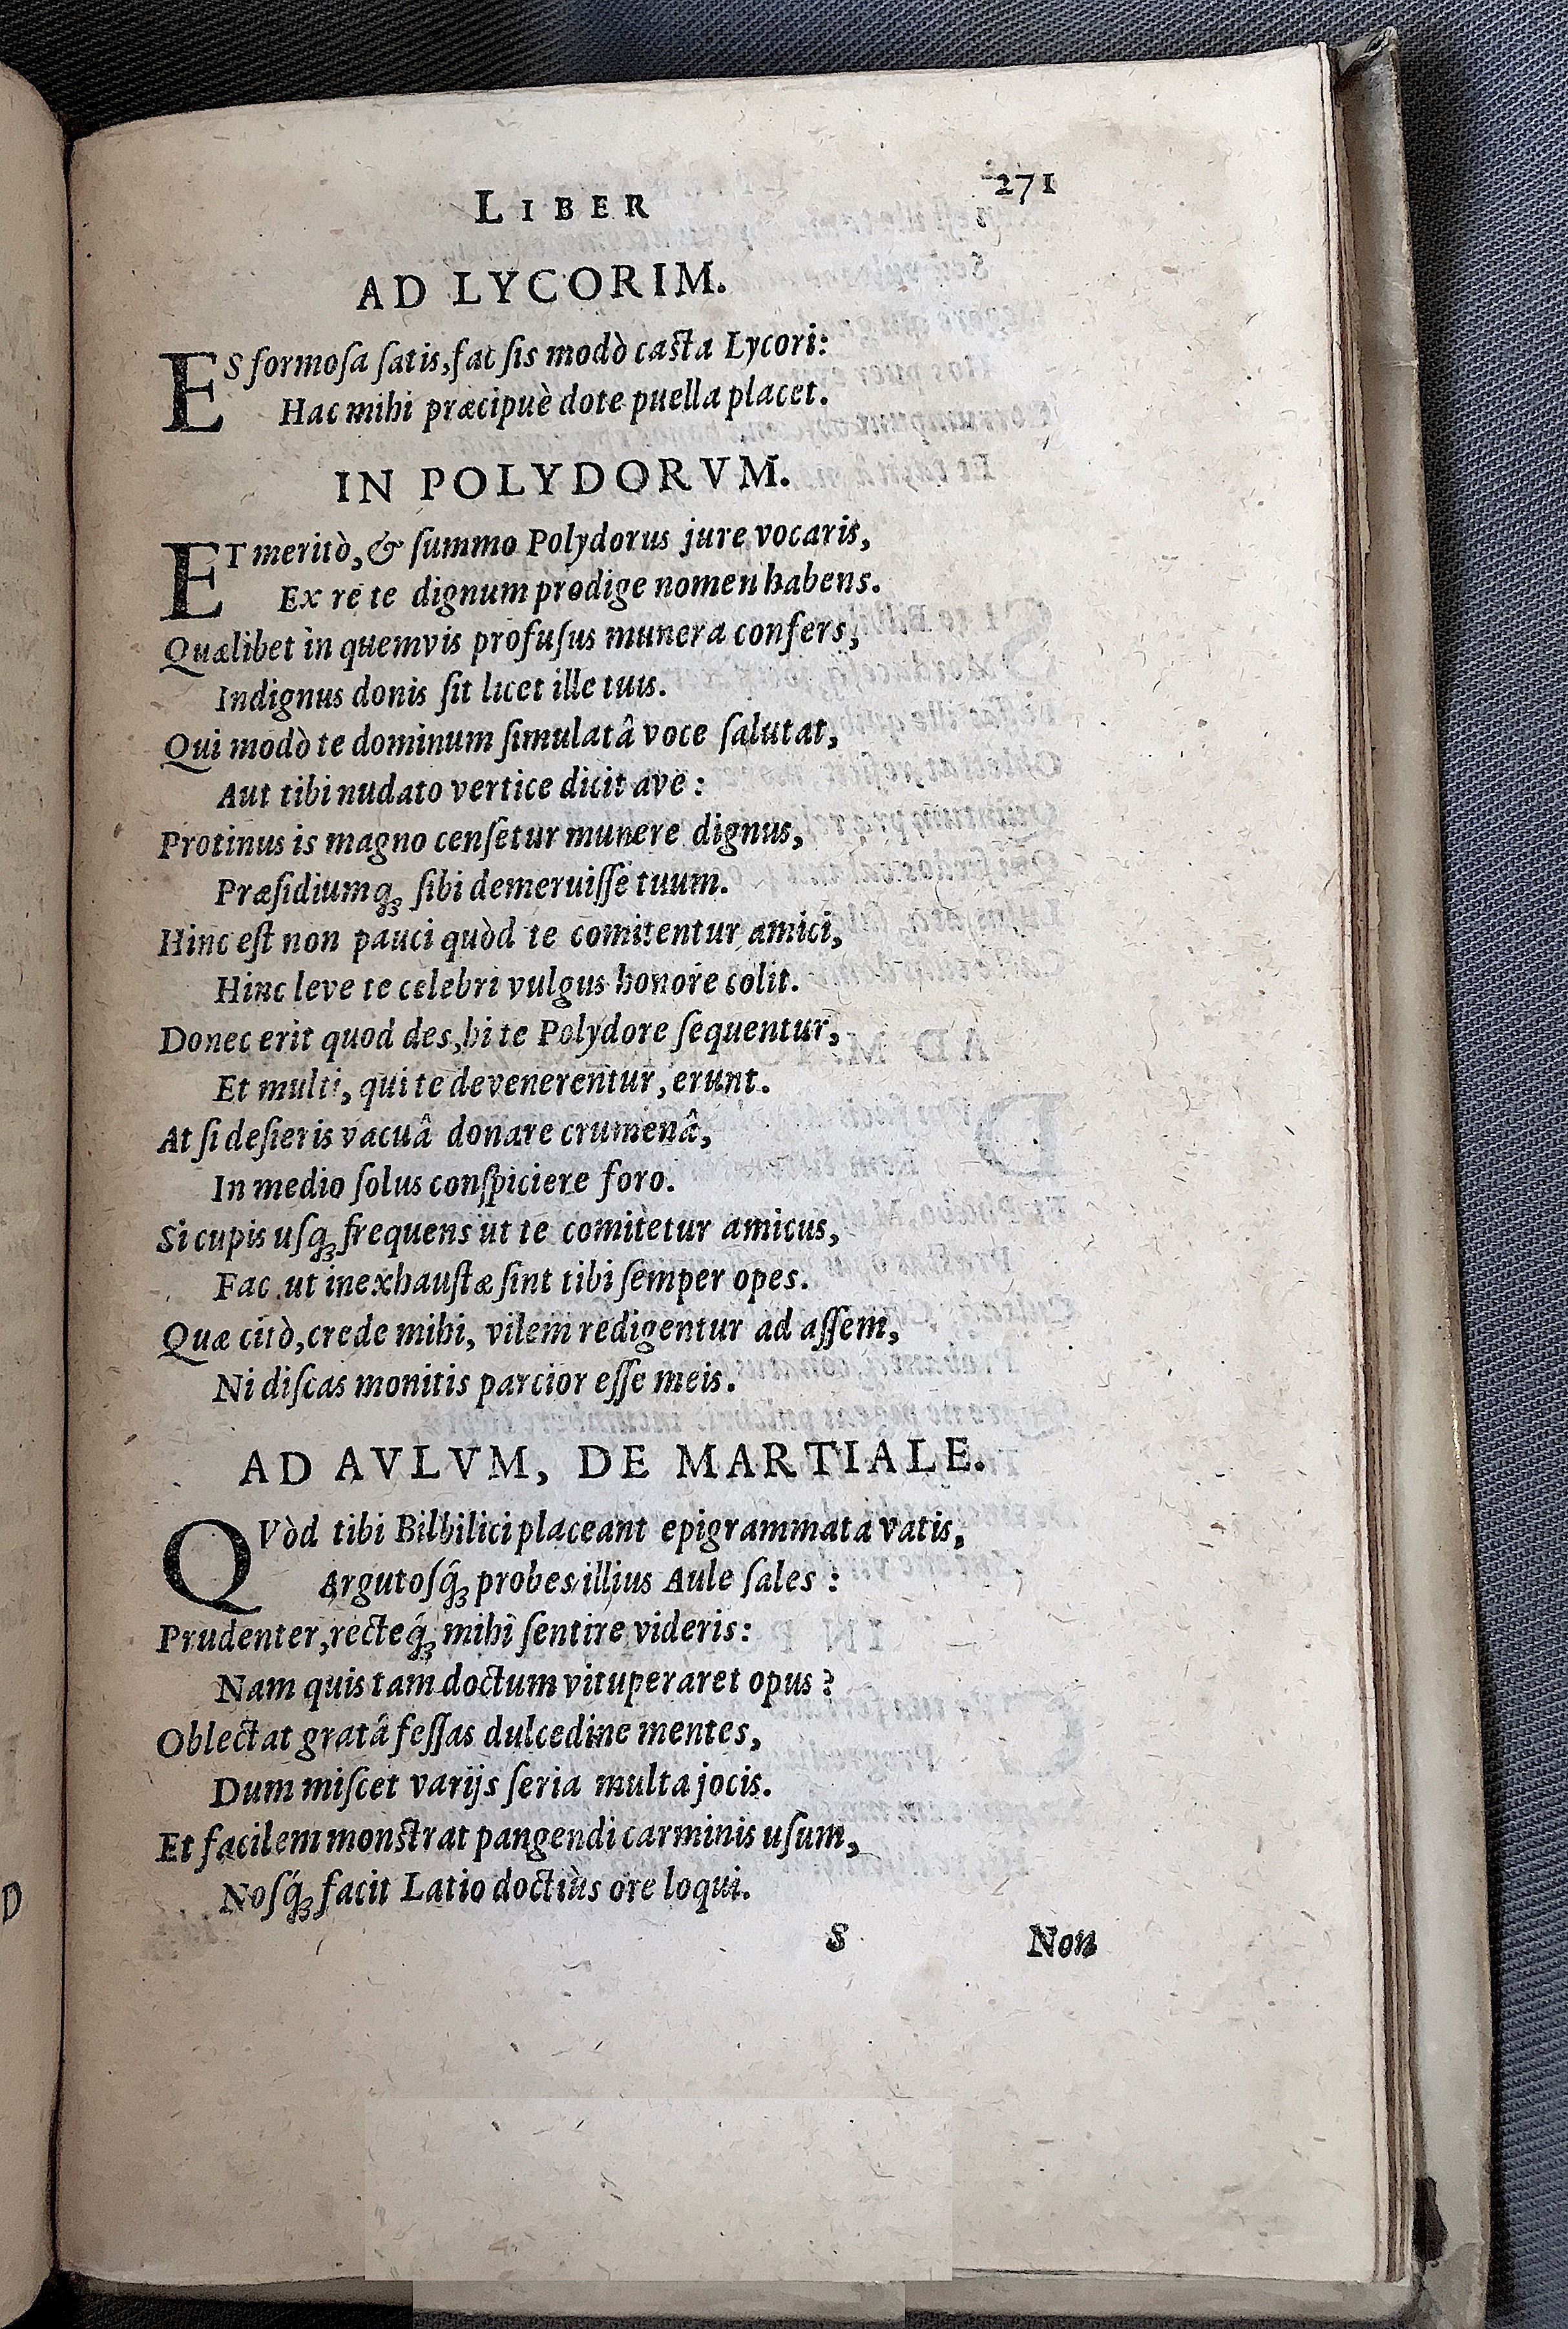 LIBER 271
AD LYCORIM.
ES formoſa ſatis, fac ſis modò caſta Lycori:
Hac mihi præcipuè dote puella placet.
IN POLYDORVM.
ET meritò, & ſummo Polydorus jure vocaris,
Ex re te dignum prodige nomen habens.
Quælibet in quemvis profuſus munera confers,
Indignus donis ſit licet ille tuis.
Qui modò te dominum ſimulatâ voce ſalutat,
Aut tibi nudato vertice dicit ave:
Protinus is magno cenſetur munere dignus,
Præſidiumq; ſibi demeruiſſe tuum.
Hinc eſt non pauci quòd te comitentur amici,
Hinc leve te celebri vulgus honore colit.
Donec erit quod des, hi te Polydore ſequentur,
Et multi, qui te devenerentur, erunt.
At ſi deſieris vacuâ donare crumenâ,
In medio ſolus conſpiciere foro.
Si cupis uſq; frequens ut te comitetur amicus,
Fac ut inexhauſtæ ſint tibi ſemper opes.
Quæ citò, crede mihi, vilem redigentur ad aſſem,
Ni diſcas monitis parcior eſſe meis.
AD AVLVM, DE MARTIALE.
QVòd tibi Bilbilici placeant epigrammata vatis,
Argutoſq́; probes illius Aule ſales:
Prudenter, recteq́; mihi ſentire videris:
Nam quis tam doctum vituperaret opus?
Oblectat gratâ feſſas dulcedine mentes,
Dum miſcet varijs ſeria multa jocis.
Et facilem monſtrat pangendi carminis uſum,
Noſq́; facit Latio doctiùs ore loqui.
S Non
D